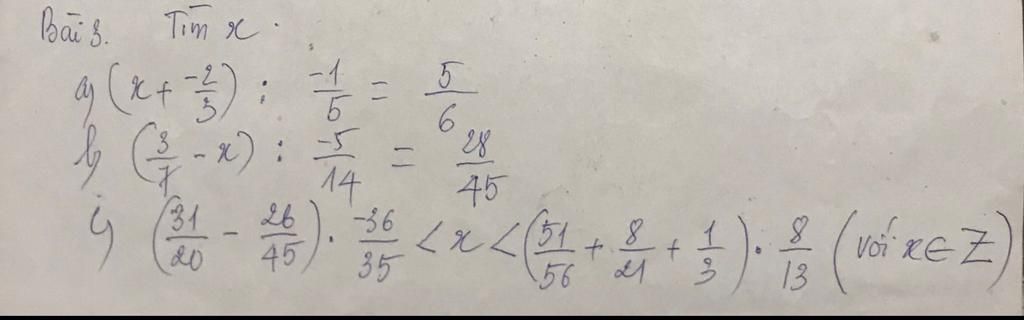 Bài 3. Tìm x.
a) (x + -2/3) : -1/5 = 5/6
b) (3/7 - x) : -5/14 = 28/45
c) (31/20 - 26/45) . -36/35 < x < (51/56 + 8/21 + 1/3) . 8/13 (với x ∈ Z)